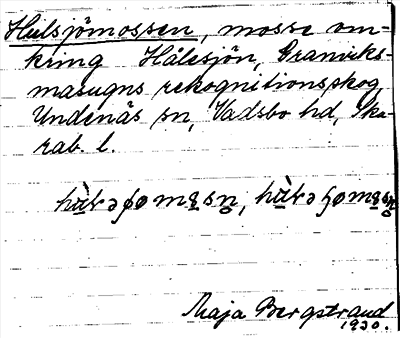 Hulsjömossen, mosse om-
kring Hålsjön, Granviks-
masugns rekognitionsskog,
Undenäs sn, Vadsbo hd, Ska-
rab. l.
Maja Bergstrand
1930.